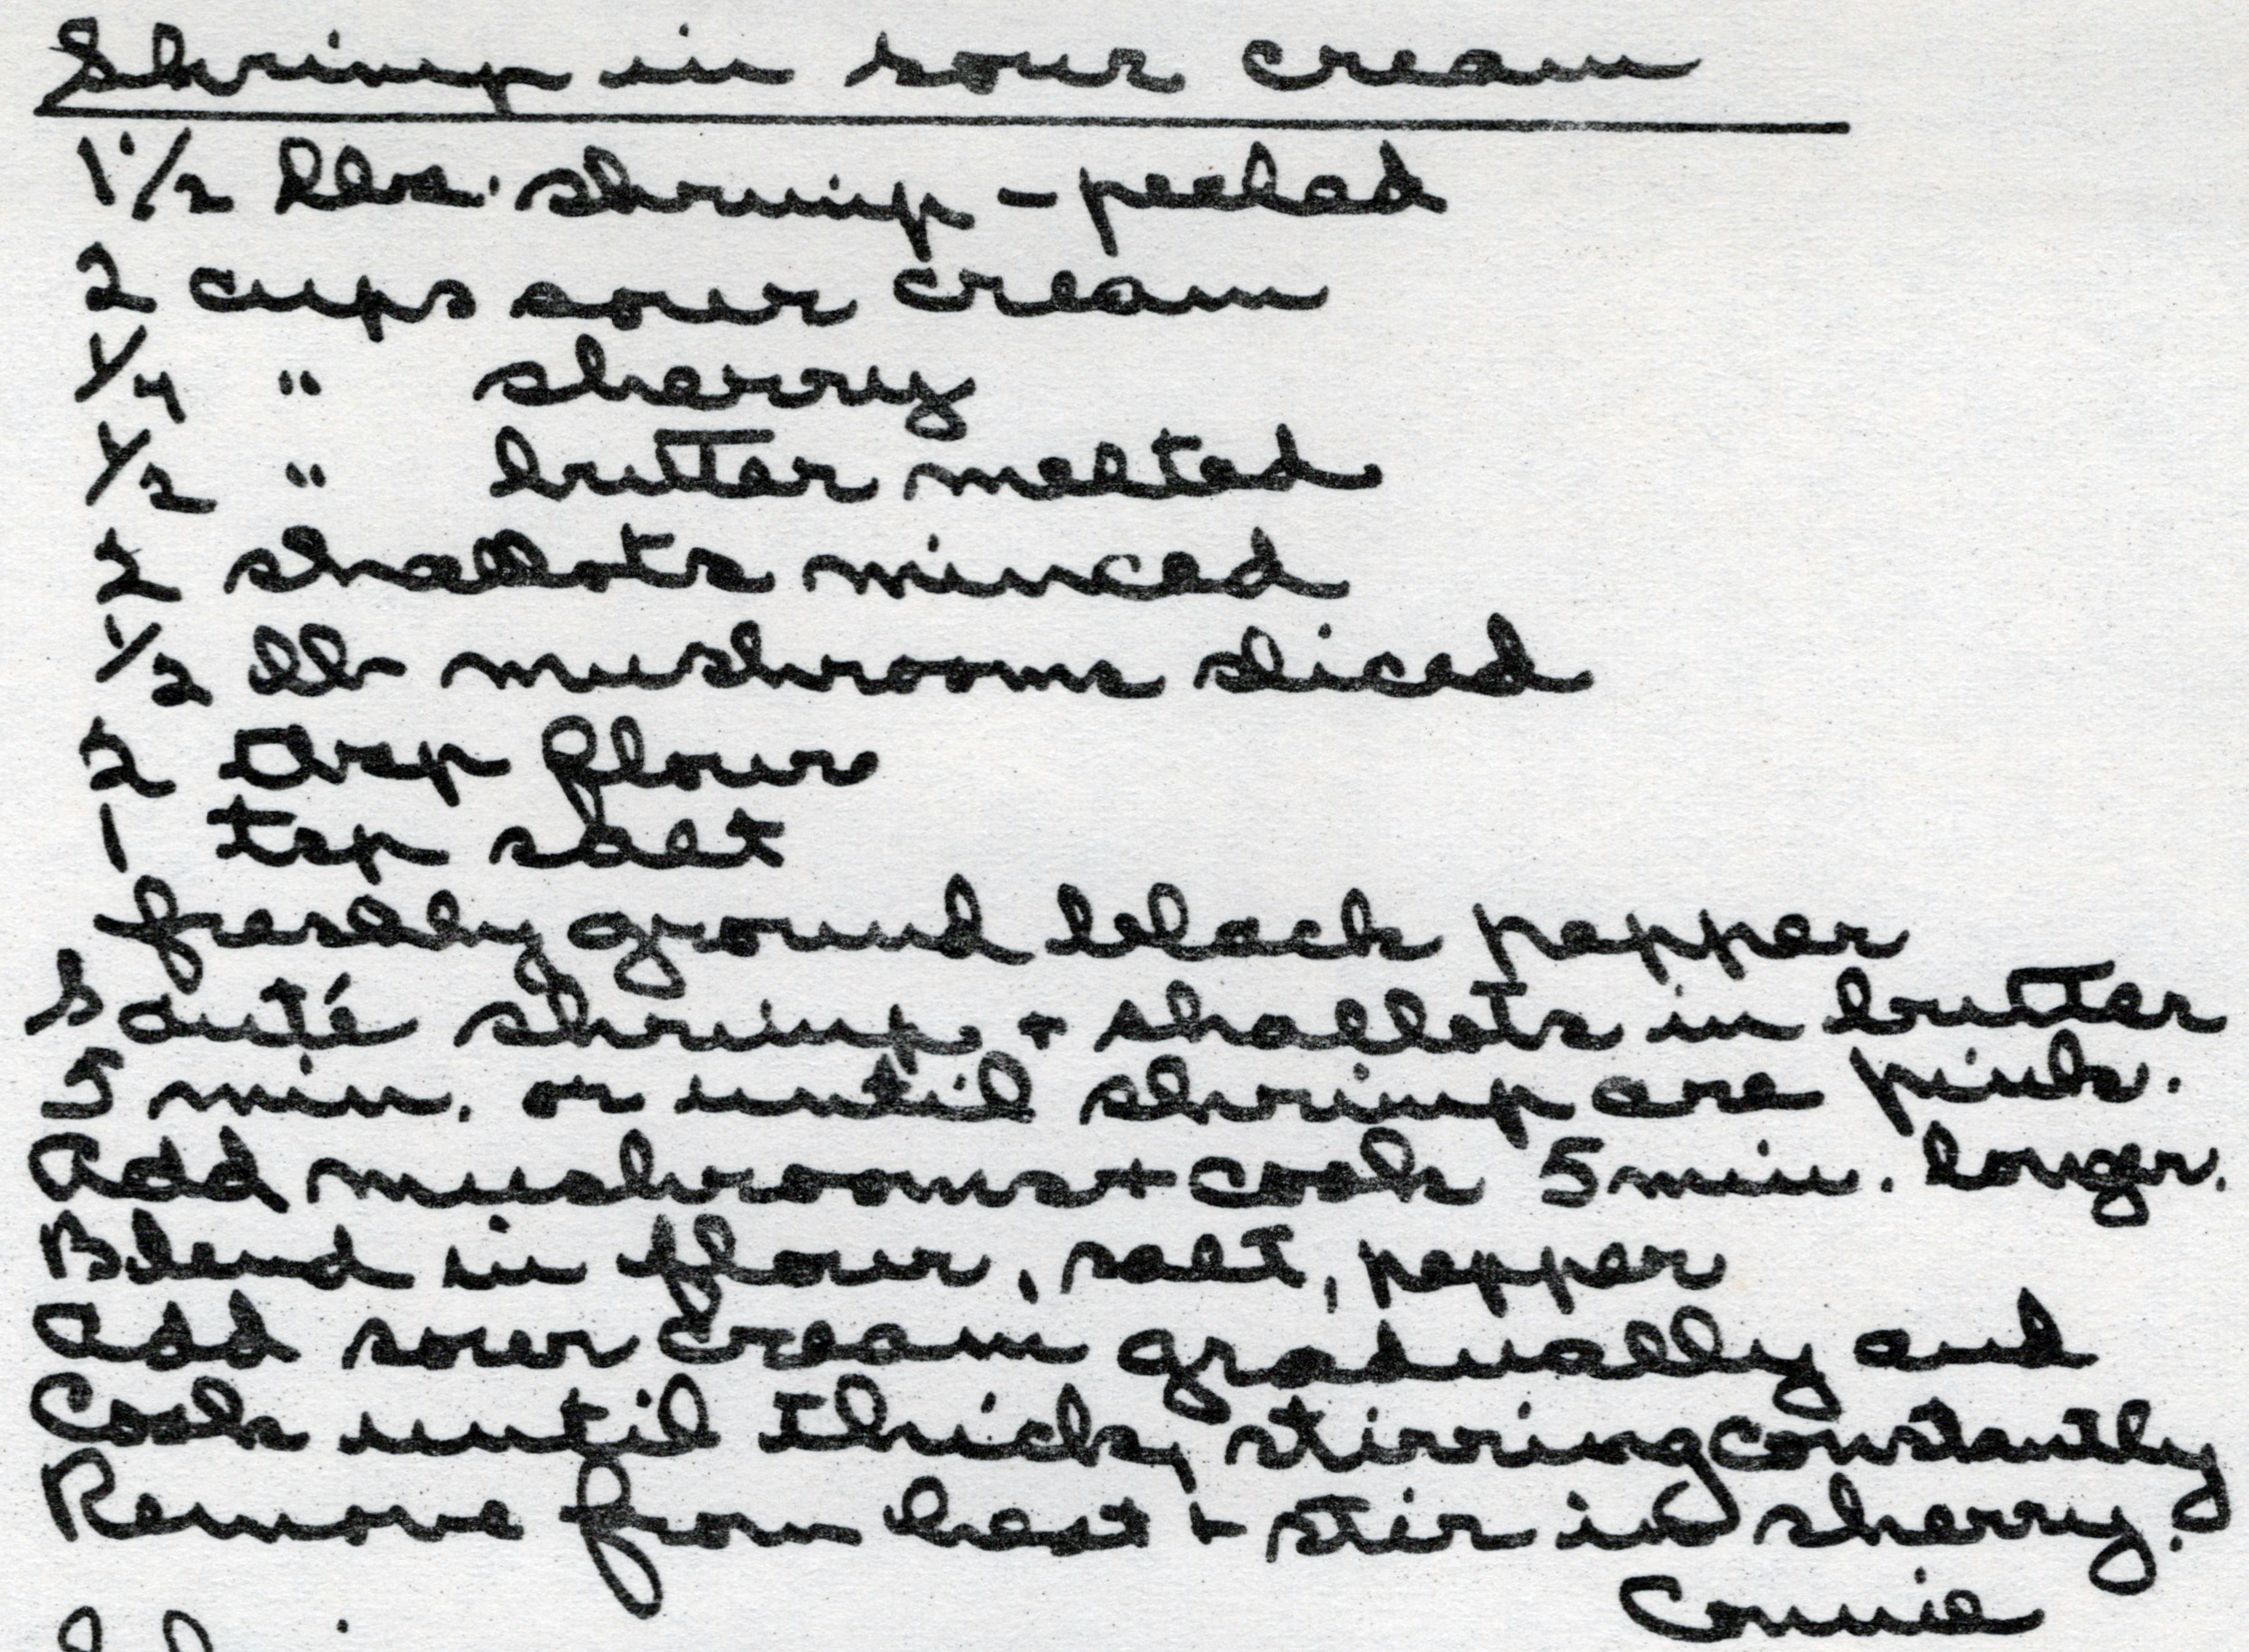 Shrimp in sour cream
1 1/2 lbs. shrimp - peeled
2 cups sour cream
1/4 " sherry
1/2 " butter melted
2 shallots minced
1/2 lb mushrooms sliced
2 tbsp flour
1 tsp salt
freshly ground black pepper
Sauté shrimp + shallots in butter
5 min. or until shrimp are pink.
Add mushrooms + cook 5 min. longer.
Blend in flour, salt, pepper
Add sour cream gradually and
Cook until thick, stirring constantly
Remove from heat + stir in sherry.
Connie